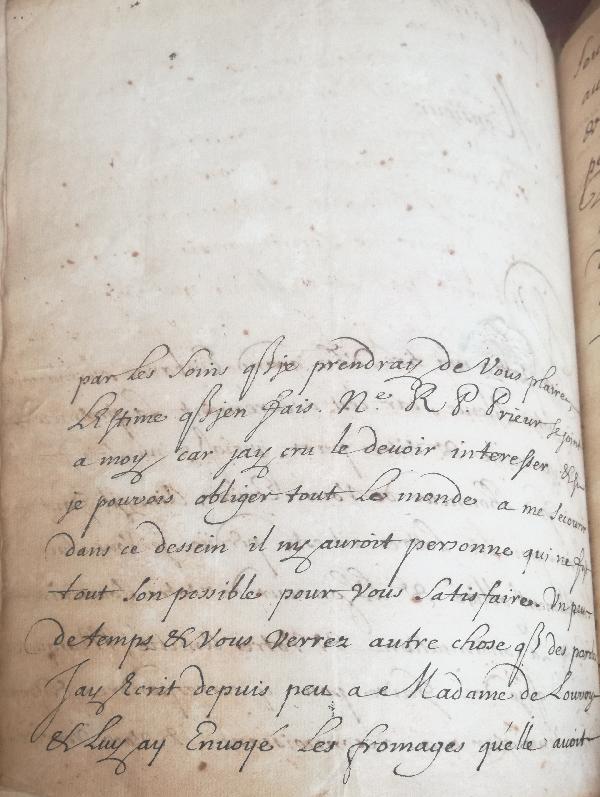 par les soins qße je prendray de Vous plaire,
L'Estime qße jen fais. Ne. R P. Prieur se joint
a moy, car jay cru le devoir interesser & si
je pouvois obliger tout le monde a me secourir
dans ce dessein il ny auroit personne qui ne fit
tout son possible pour vous satisfaire. Un peu
de temps & vous verrez autre chose qße des
Jay Ecrit depuis peu a Madame de Louvoy
& luy ay Envoyé les fromages quélle avoit